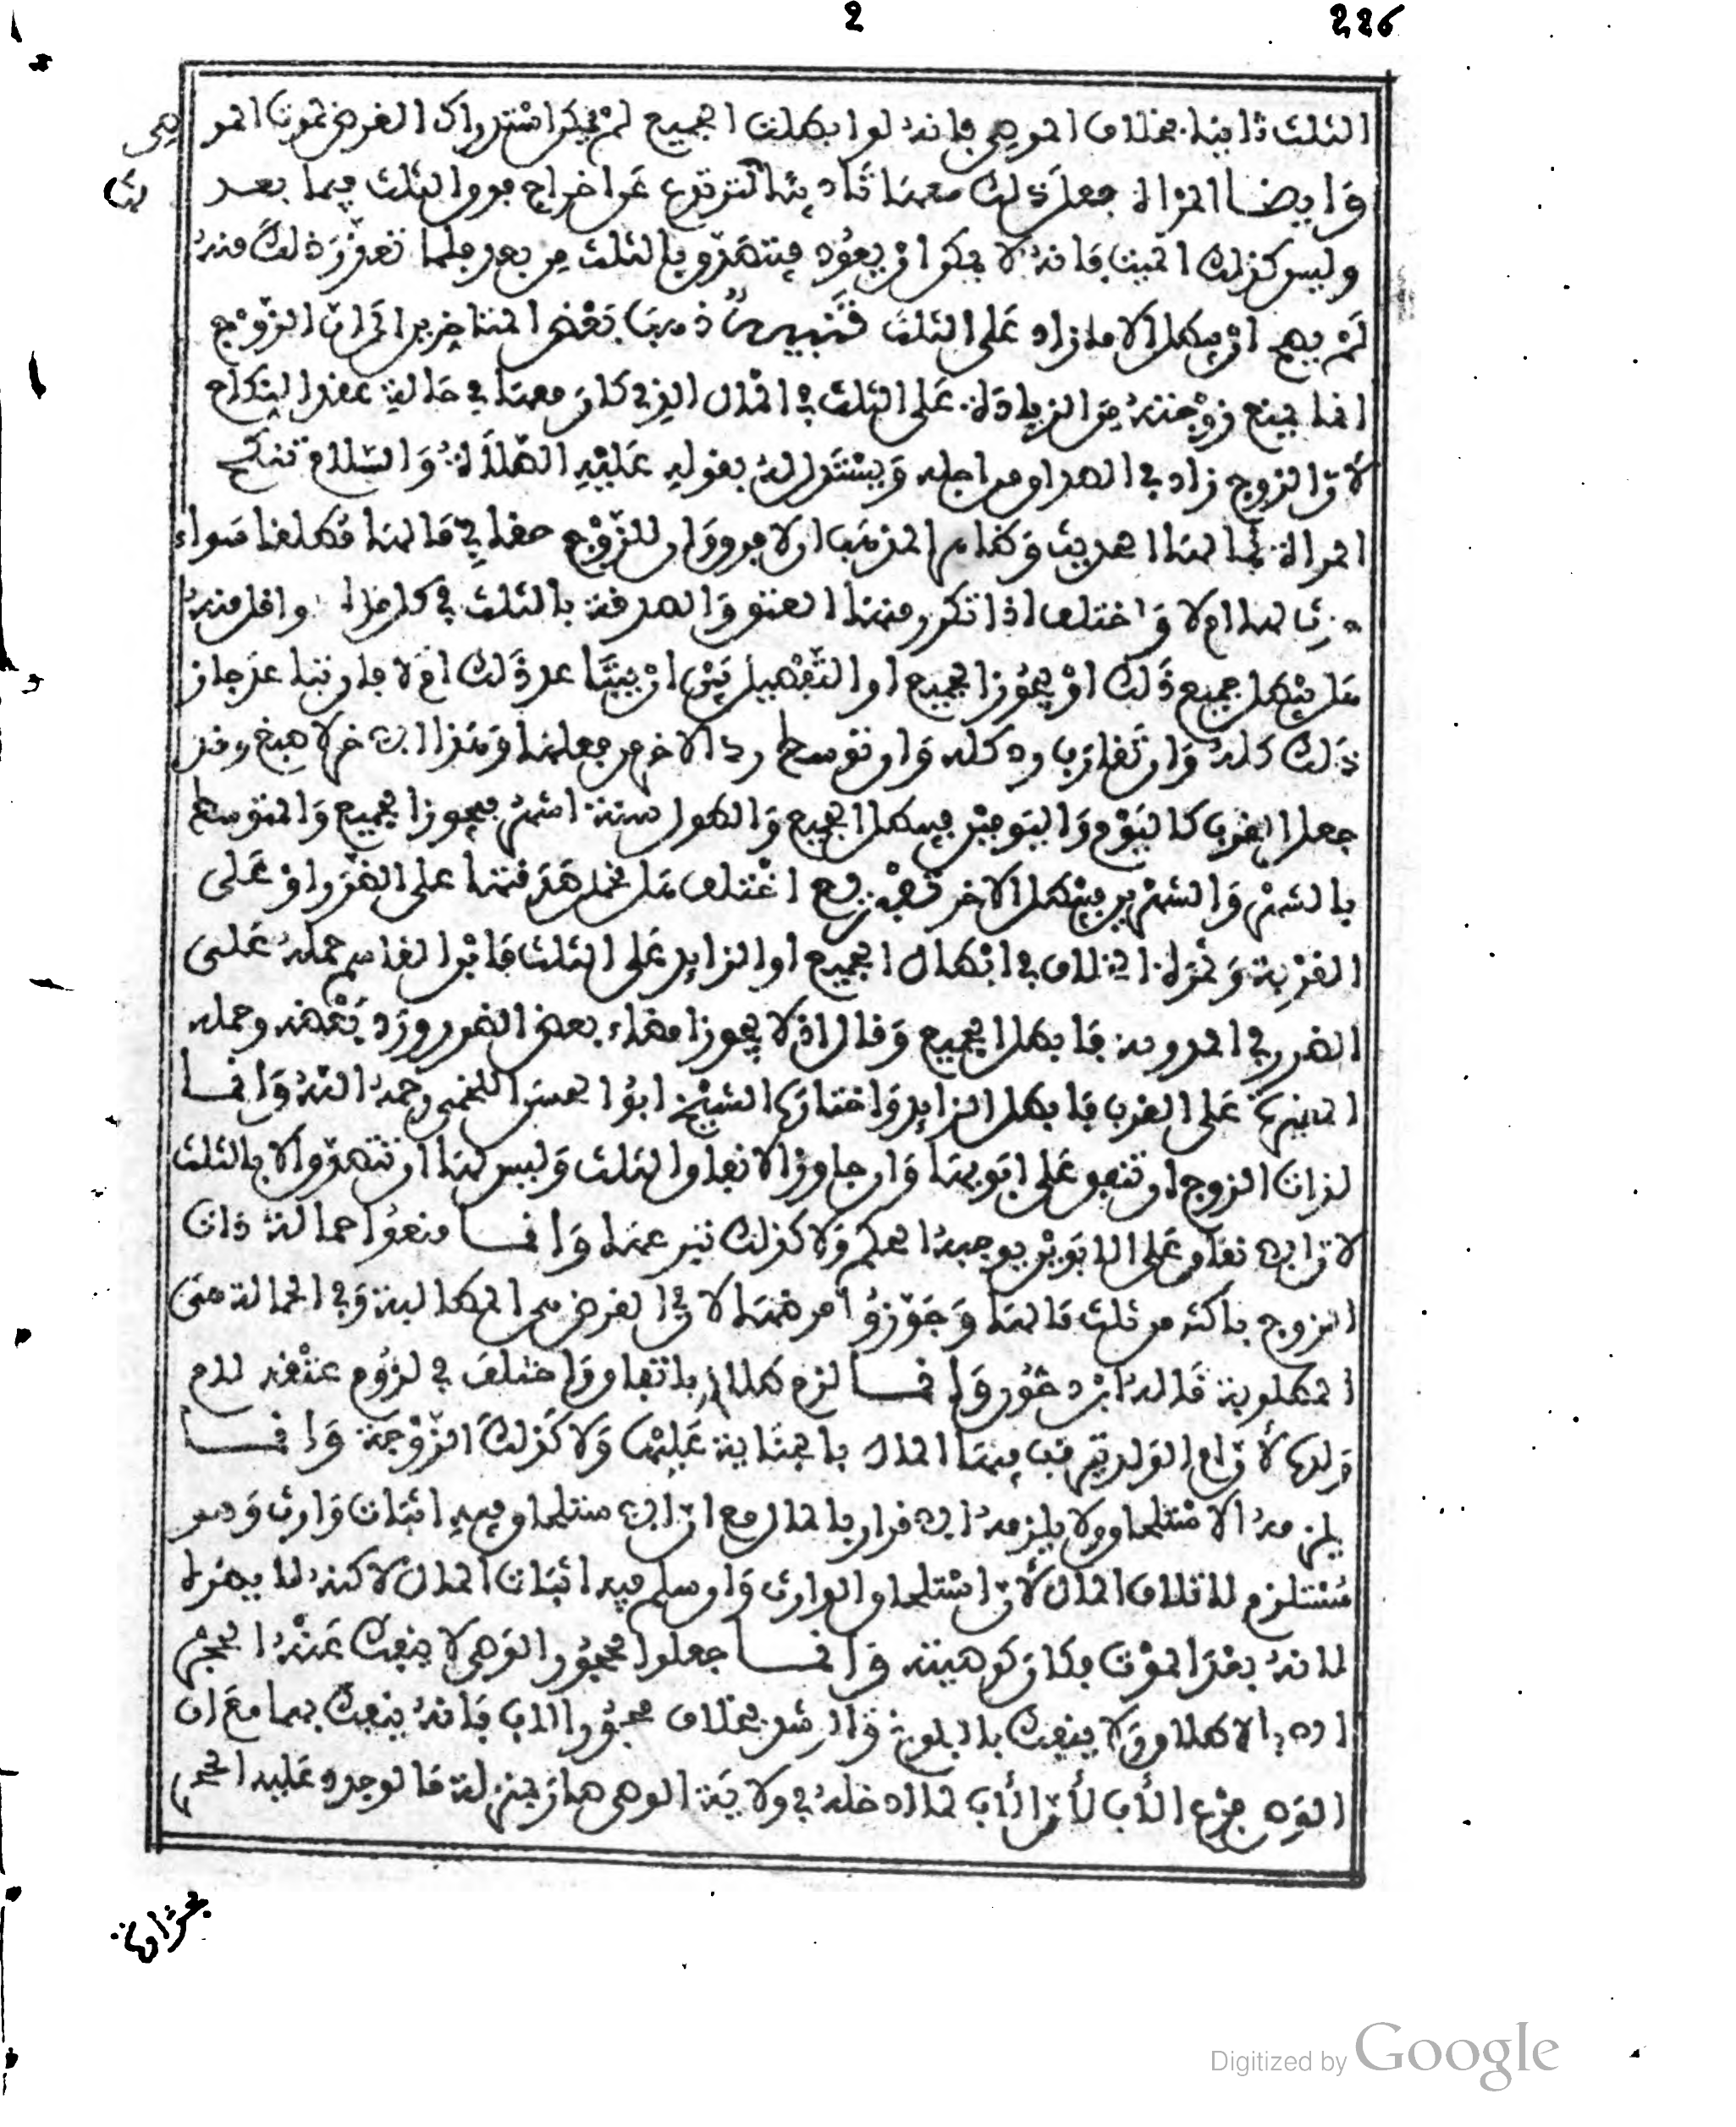 2
226
الثلث ثانيا بخلاف الموصي فإنه لو ابطلت الجميع لم يمكن استدراك الغرض لموت الموصي
وأيضا المرأة جعل ذلك معها تأديبا لترتدع عن اخراج فوق الثلث فيما بعد
وليس كذلك الميت فإنه لا يمكن أن يعود فيتصدق بالثلث من بعد فلما تعذر ذلك منه
لم يصح أن يبطل الا ما زاد على الثلث تنبيه ذهب بعض المتأخرين الى أن الزوج
انما يمنع زوجته من الزيادة على الثلث في المال الذي كان معها في حالة عقد النكاح
لأن الزوج زاد في الصداق من اجله ويستدل له بقوله عليه الصلاة والسلام تنكح
المرأة لمالها الحديث وظاهر المذهب ان لا فرق وان للزوج حقا في مالها مطلقا سواء
مالها ام لا واختلف اذا تكرر منها العتق والصدقة بالثلث في كل مرة او اقل منه
هل يبطل جميع ذلك او يجوز الجميع او التفصيل بين ان يبعد ذلك ام لا فان تباعد جاز
ذلك كله وان تقارب رد كله وان توسط رد الاخر من فعلها وهذا الذي لاصبغ وقد
جعل القرب كاليوم واليومين فيبطل الجميع والطول ستة اشهر فيجوز الجميع والمتوسط
بالشهر والشهرين فيبطل الاخر تفريع اختلف هل تحمل صدقتها على الضرر او على
القربة وثمرة الخلاف في ابطال الجميع او الزايد على الثلث فابن القاسم حمله على
الضرر في المدونة فابطل الجميع وقال اذ لا يجوز امضاء بعض الضرر ورد بعضه وحمله
المغيرة على القرب فابطل الزايد واختاره الشيخ ابو الحسن اللخمي رحمه الله وانما
لذات الزوج ان تنفق على ابويها وان جاوز الانفاق الثلث وليس لها ان تتصدق الا بالثلث
لان الانفاق على الابوين يوجبه الحكم ولا كذلك تبرعها وانما منعوا حمالة ذات
الزوج باكثر من ثلث مالها وجوزوا قرضها لان في القرض هي الطالبة وفي الحمالة هي
المطلوبة قاله ابن دحون وانما لزم طلاق باتفاق واختلف في لزوم عتقه لام
ولده لأن ام الولد يترقب فيها المال بالجناية عليها ولا كذلك الزوجة وانما
يلزمه الاستلحاق ولا يلزمه الاقرار بالمال مع ان الاستلحاق فيه اثبات وارث وهو
مستلزم لاتلاف المال لأن استلحاق الوارث وان سلم فيه اثبات المال لاكنه لا يضره
لانه بعد الموت فكان كوصيته وانما جعلوا محجور الوصي لا ينفك عنه الحجر
الا بالاطلاق ولا ينفك بالبلوغ والرشد بخلاف محجور الاب فانه ينفك بهما مع ان
الوصي فرع الأب لأن الأب لما ادخله في ولاية الوصي صار بمنزلة ما لو جدد عليه الحجر
Digitized by Google